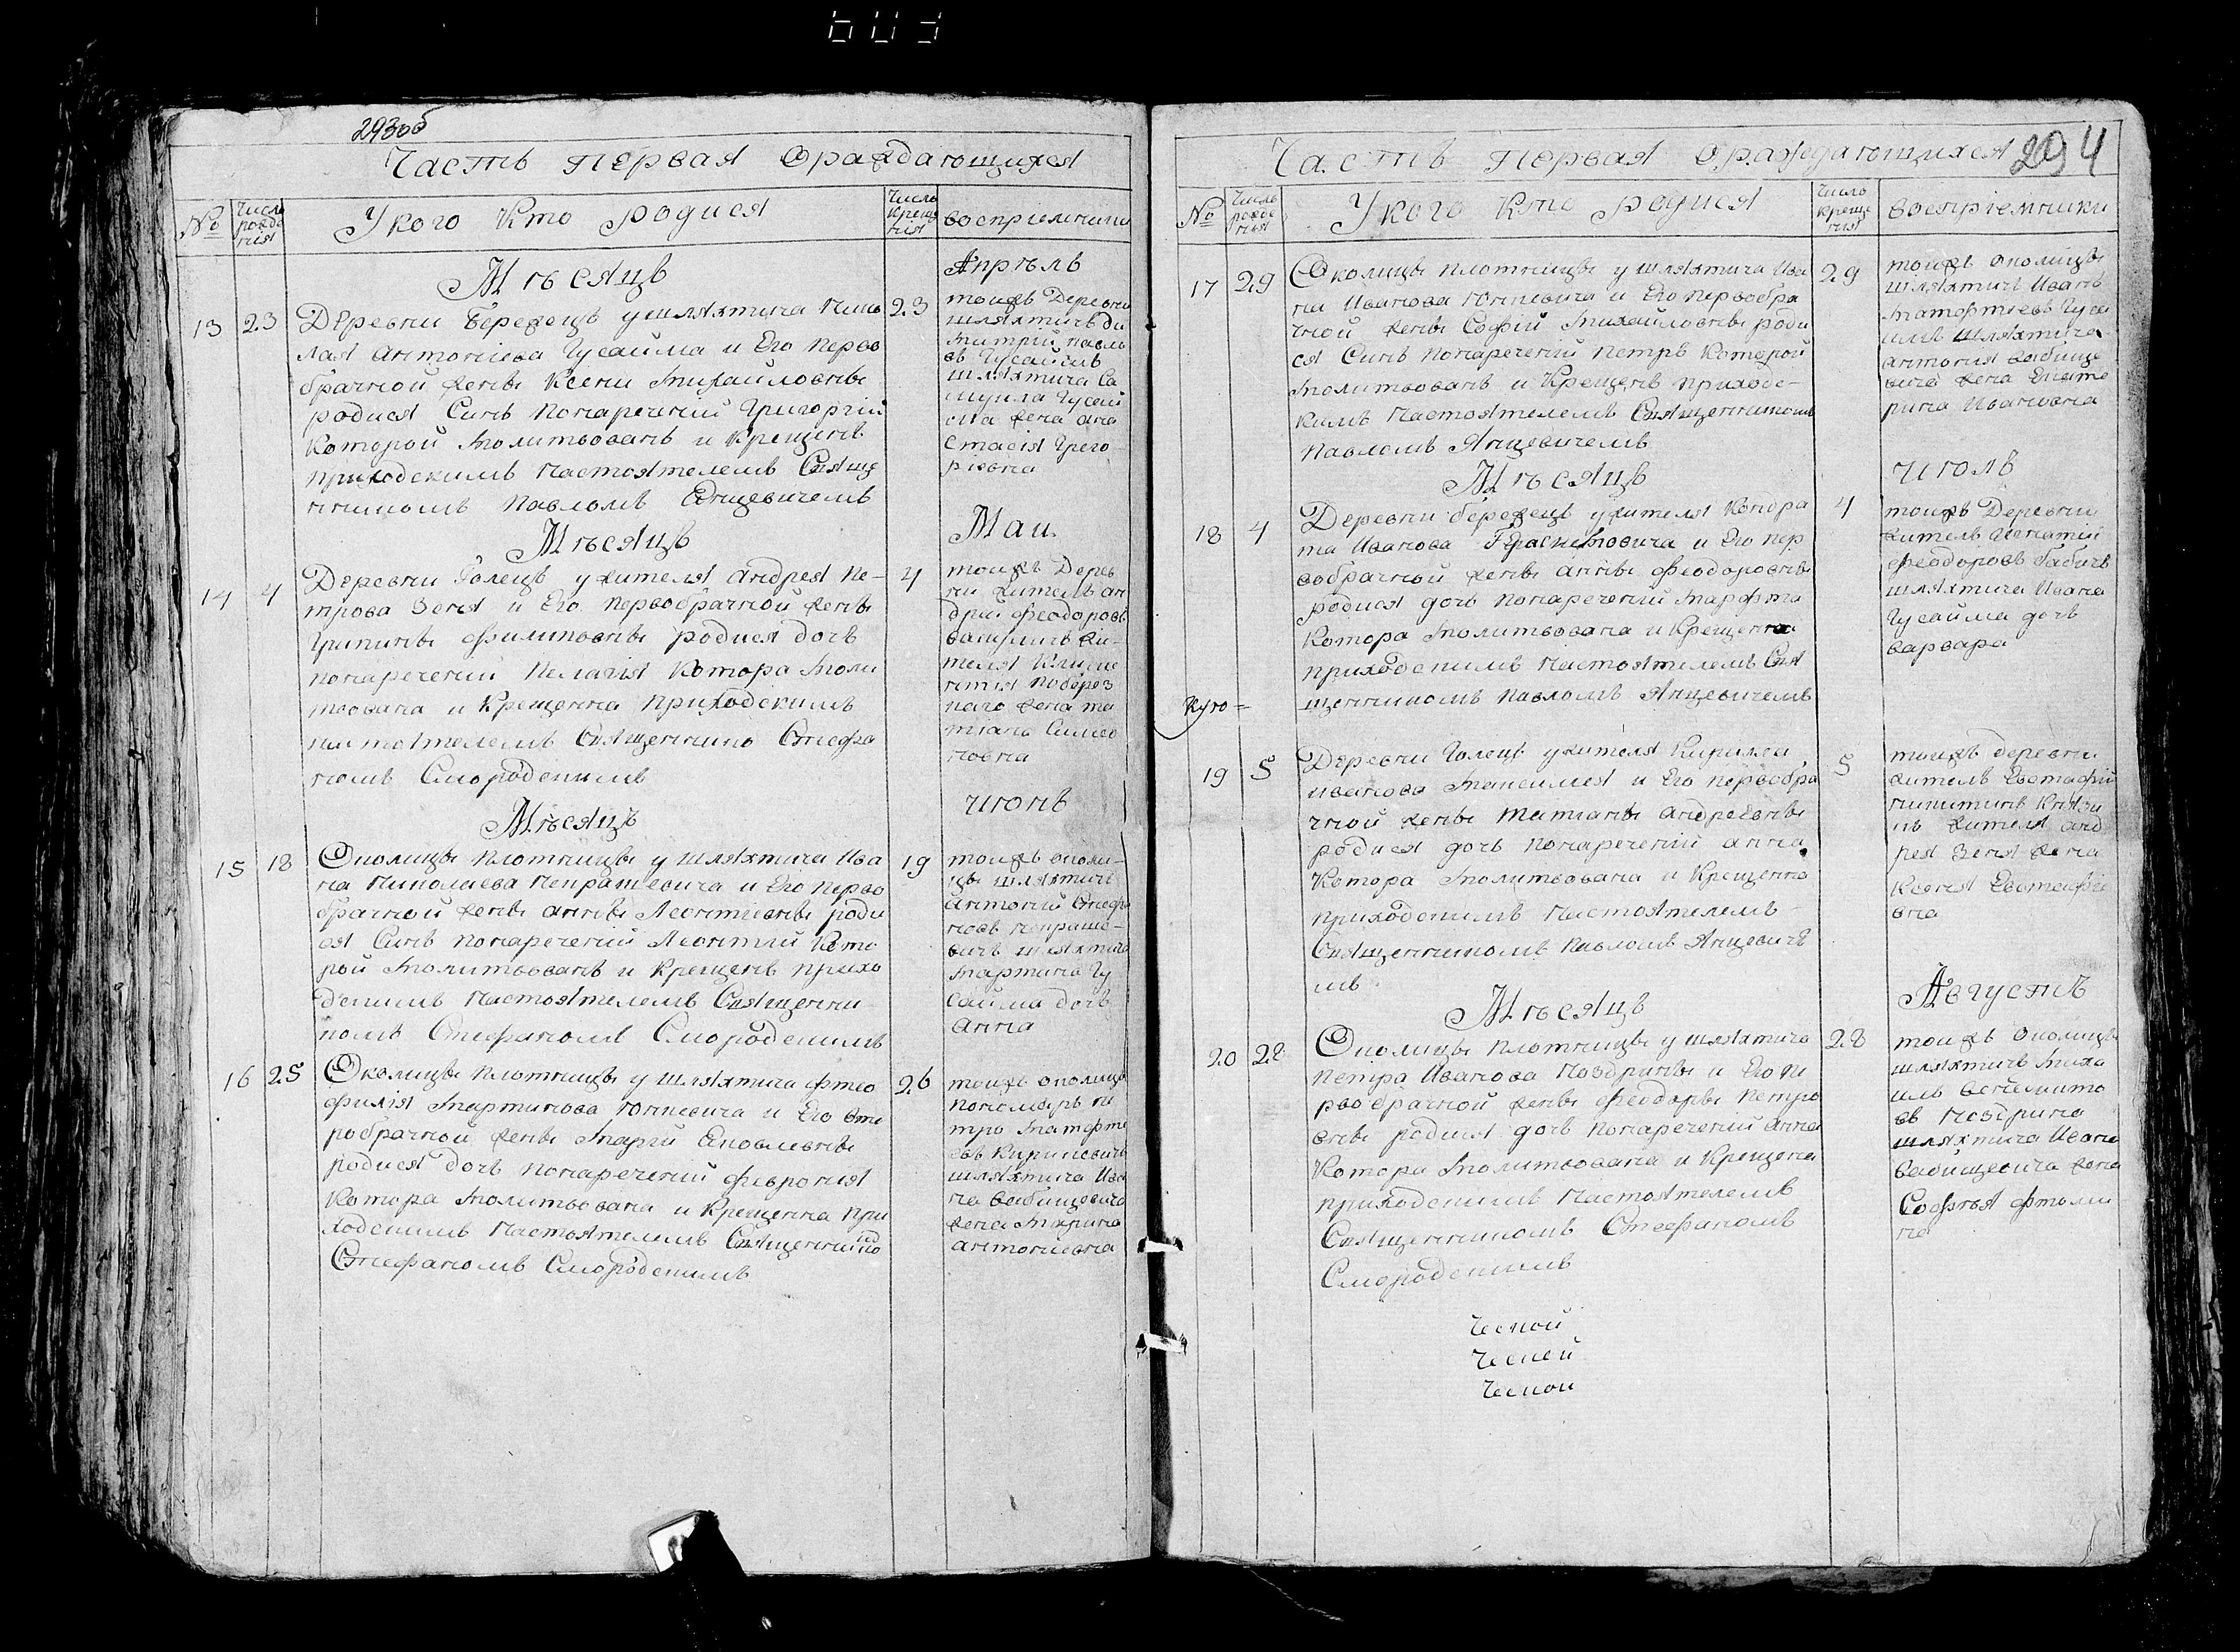 293об
Часть первая Ораждающихся
№
Число рожде ния
У кого Кто родися
Число Креще ния
восприемники
Мѣсяцъ
Апрѣль
13 23
Деревни Бережецъ у шляхтича Нико
лая антоніева Гусайма и Его перво
брачной жены Ксени михайловны
родися Синъ понареченій Григоргій
Которой молитвованъ и Крещенъ
приходскимъ Настоятелемъ Свяще
нникомъ Павломъ
23
тоижъ Деревни
шляхтичъ Ди
митрій павло
въ Гусаймъ
шляхтича Са
муила Гусай
ма жена ана
стасія Григо
ріевна
Мѣсяцъ
Маи.
14 4
Деревни Голецъ у жителя андрея пе-
трова Зеня и Его первобрачной жены
Грипины филиповны родися дочъ
понареченій пелагія Котора моли
твована и Крещенна приходскимъ
настоятелемъ Священнико Стефа
номъ Смородскимъ
4
тоижъ Дерев
ни житель ан
дрій феодоровъ
жи-
теля
жена та
тіана Симео
новна
Мѣсяцъ
июнь
15 18
Околицы плотницы у шляхтича Ива
на Николаева Непрашевича и Его перво
брачной жены анны Леонтіевны роди
ся Синъ понареченій Леонтій Кото
рой молитвованъ и Крещенъ прихо
дскимъ Настоятелемъ Священни
комъ Стефаномъ Смородскимъ
19
тоижъ околи-
цы шляхтичъ
антоній Стефа
новъ непраше-
вичъ шляхтича
мартина Гу
сайма дочъ
анна
16 25
Околицы плотницы у шляхтича фтео
филія мартинова Юнцевича и Его вто
робрачной жены маріи Яковлевны
родися дочъ понареченій феврония
Котора молитвована и Крещенна при
ходскимъ Настоятелемъ Священнико
Стефаномъ Смородскимъ
26
тоижъ околицы
пономаръ пе
тро матфте
въ
шляхтича Ива
на вабищевича
жена марина
антониевна
Часть первая Ораждающихся
294
№
Число рожде ния
У кого Кто родися
Число Креще ния
воспріемники
17 29
Околицы плотницы у шляхтича Ива
на Иванова Юнцевича и Его первобра
чной жены Софій михайловны роди
ся Синъ понареченій петръ Которой
молитвованъ и Крещенъ приходс-
кимъ Настоятелемъ Священникомъ
павломъ Янцевичемъ
29
тоижъ околицы
шляхтичъ Иванъ
матфтеевъ Гуса
имъ шляхтича
антония вабище
вича жена Екате
рина Ивановна
Мѣсяцъ
июль
18 4
Деревни бережецъ у жителя Кондра
та Иванова и Его пер
вобрачной жены анны феодоровны
родися дочъ понареченій марфта
Котора молитвована и Крещенна
приходскимъ Настоятелемъ Свя
щенникомъ павломъ Янцевичемъ
4
тоижъ Деревни
житель игнатій
феодоровъ бабичъ
шляхтича Ивана
Гусайма дочъ
варвара
19 5
Деревни Голецъ у жителя Кирилла
иванова и Его первобра
чной жены татианы андреевны
родися дочъ понареченій анна
Котора молитвована и Крещенна
приходскимъ Настоятелемъ-
Священникомъ павломъ Янцевиче
мъ
5
тоижъ деревни
житель Евстафій
никитинъ
жителя анд
рея Зеня жена
Ксения Евстафіе
вна
Мѣсяцъ
Августъ
20 28
Околицы плотницы у шляхтича
петра Иванова Ноздрины и Его пе
рвобрачной жены феодоры петро
вны родися дочъ понареченій анна
Котора молитвована и Крещена
приходскимъ Настоятелемъ
Священникомъ Стефаномъ
Смородскимъ
28
тоижъ околицы
шляхтичъ миха
илъ
въ Ноздрина
шляхтича Ивана
вабищевича жена
Софтья фтоми
на